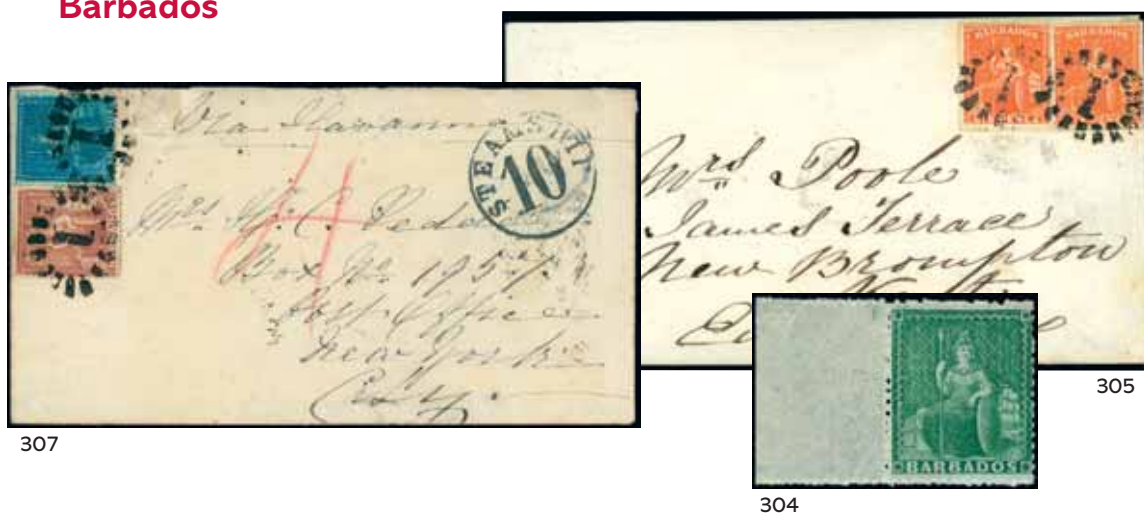 Barbados
Via Havanna
STEAMSHIP
10
Mrs. C.
Box No. 1957
Post Office
New York
City.
307
BARBADOS BARBADOS
1 1
Mrs Poole
James Terrace
New Brompton
305
BARBADOS
304